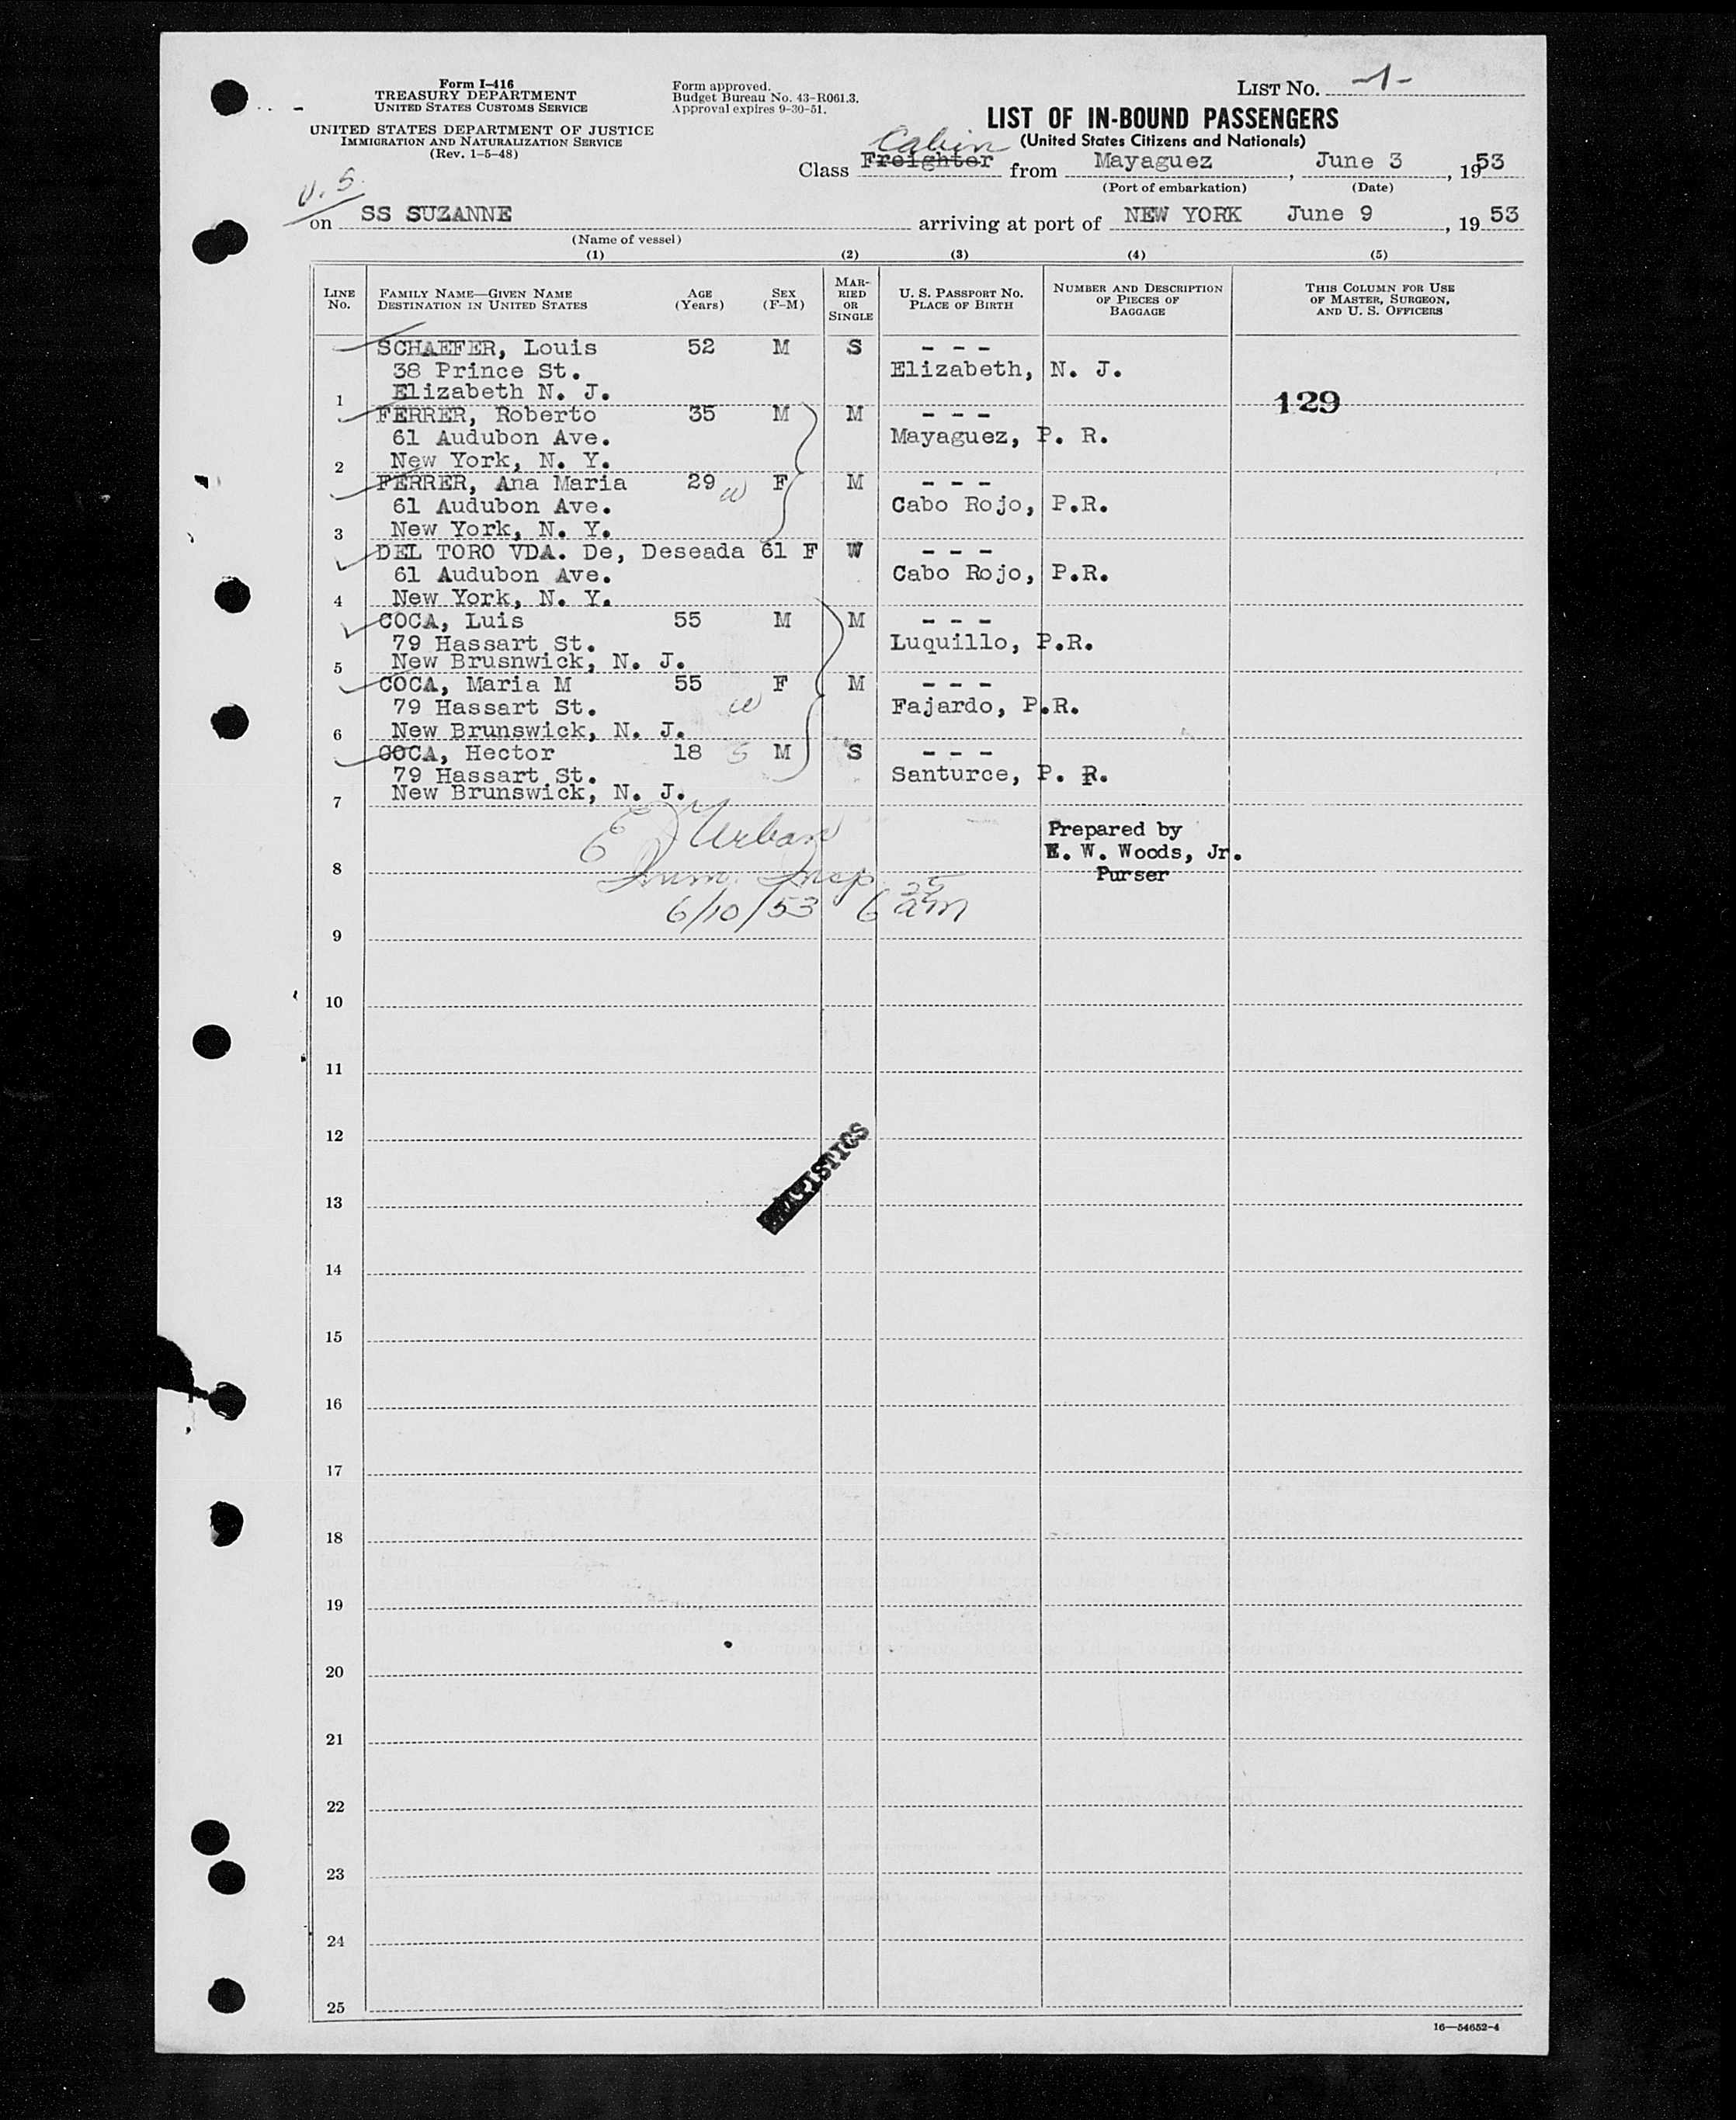 Form I-416
TREASURY DEPARTMENT
UNITED STATES CUSTOMS SERVICE
UNITED STATES DEPARTMENT OF JUSTICE
IMMIGRATION AND NATURALIZATION SERVICE
(Rev. 1-5-48)
Form approved.
Budget Bureau No. 43-R061.3.
Approval expires 9-30-51.
LIST No. -1-
LIST OF IN-BOUND PASSENGERS
(United States Citizens and Nationals)
Cabin
Class Freighter from Mayaguez, June 3, 1953
(Port of embarkation) (Date)
U. S.
on SS SUZANNE arriving at port of NEW YORK June 9, 1953
(Name of vessel)
(1) (2) (3) (4) (5)
LINE No. FAMILY NAME—GIVEN NAME DESTINATION IN UNITED STATES AGE (Years) SEX (F-M) MARRIED OR SINGLE U. S. PASSPORT NO. PLACE OF BIRTH NUMBER AND DESCRIPTION OF PIECES OF BAGGAGE THIS COLUMN FOR USE OF MASTER, SURGEON, AND U. S. OFFICERS
SCHAEFER, Louis 52 M S - - -
38 Prince St. Elizabeth, N. J.
1 Elizabeth N. J. 129
FERRER, Roberto 35 M M - - -
61 Audubon Ave. Mayaguez, P. R.
2 New York, N. Y.
FERRER, Ana Maria 29 w F M - - -
61 Audubon Ave. Cabo Rojo, P.R.
3 New York, N. Y.
DEL TORO VDA. De, Deseada 61 F W - - -
61 Audubon Ave. Cabo Rojo, P.R.
4 New York, N. Y.
COCA, Luis 55 M M - - -
79 Hassart St. Luquillo, P.R.
5 New Brusnwick, N. J.
COCA, Maria M 55 F M - - -
79 Hassart St. w Fajardo, P.R.
6 New Brunswick, N. J.
COCA, Hector 18 S M S - - -
79 Hassart St. Santurce, P. R.
7 New Brunswick, N. J.
Urban Prepared by
E. W. Woods, Jr.
8 Imm. Insp. Purser
6/10/53 6 25 am
9
10
11
12
STATISTICS
13
14
15
16
17
18
19
20
21
22
23
24
25
16—54652-4